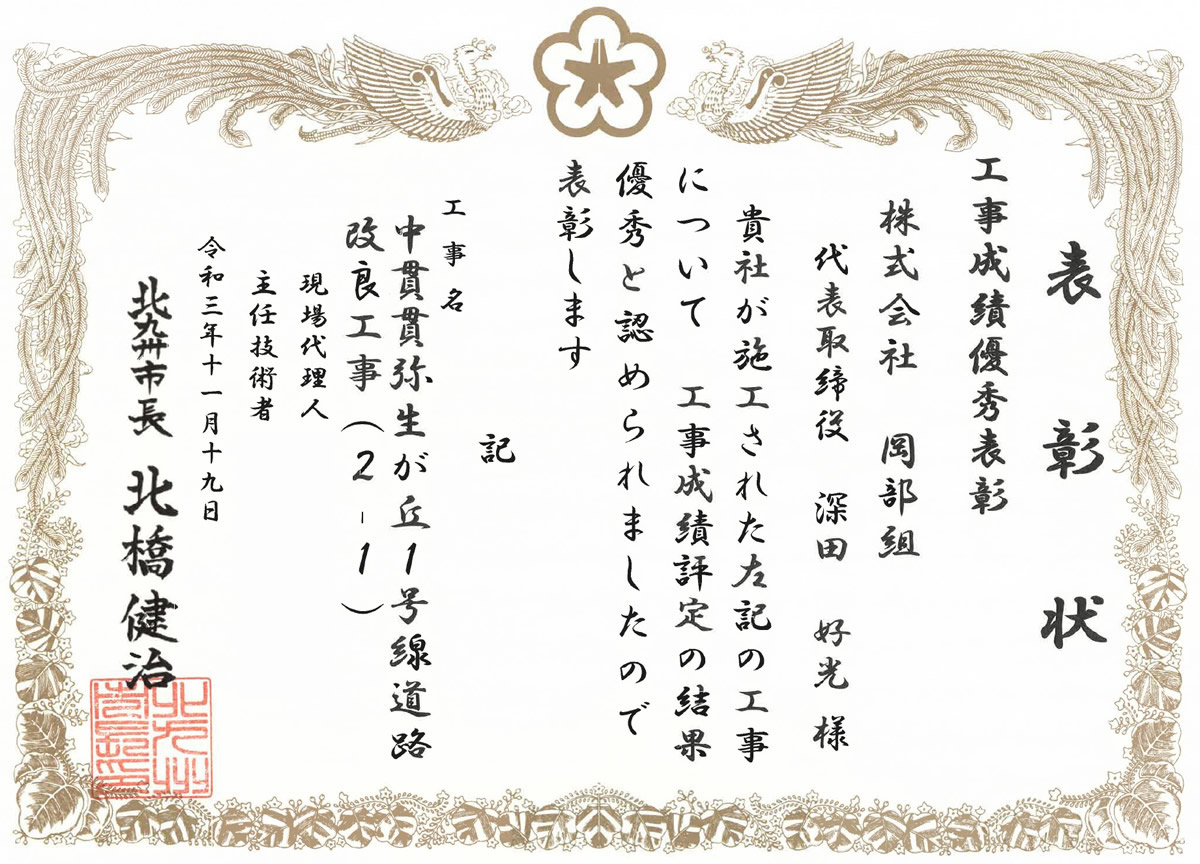 表彰状
工事成績優秀表彰
株式会社 岡部組
代表取締役 深田 好光 様
貴社が施工された左記の工事
について 工事成績評定の結果
優秀と認められましたので
表彰します
記
工事名
中貫貫弥生が丘1号線道路
改良工事(2-1)
現場代理人
主任技術者
令和三年十一月十九日
北九州市長 北橋健治
北九州
市長印